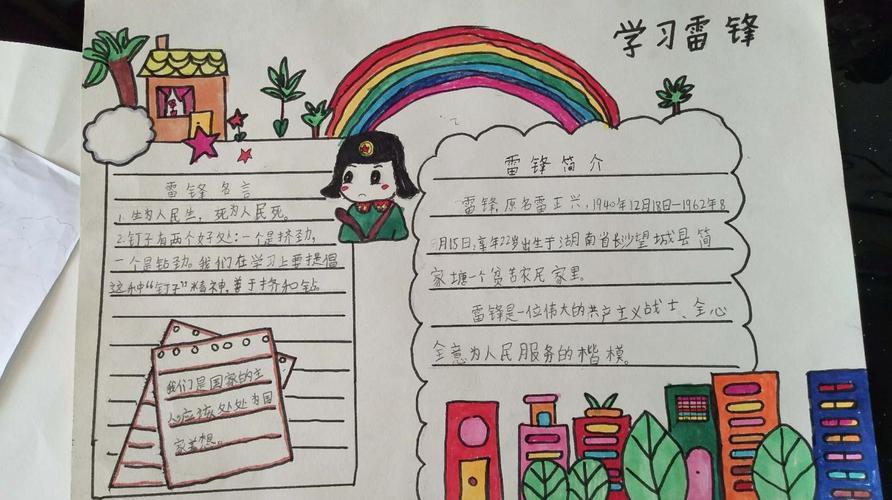 学习雷锋
雷锋名言
1.生为人民生，死为人民死。
2.钉子有两个好处：一个是挤劲，
一个是钻劲。我们在学习上要提倡
这种“钉子”精神，善于挤和钻。
我们是国家的主
人，应该处处为国
家着想。
雷锋简介
雷锋，原名雷正兴，1940年12月18日—1962年8
月15日，享年22岁出生于湖南省长沙望城县简
家塘一个贫苦农民家里。
雷锋是一位伟大的共产主义战士、全心
全意为人民服务的楷模。